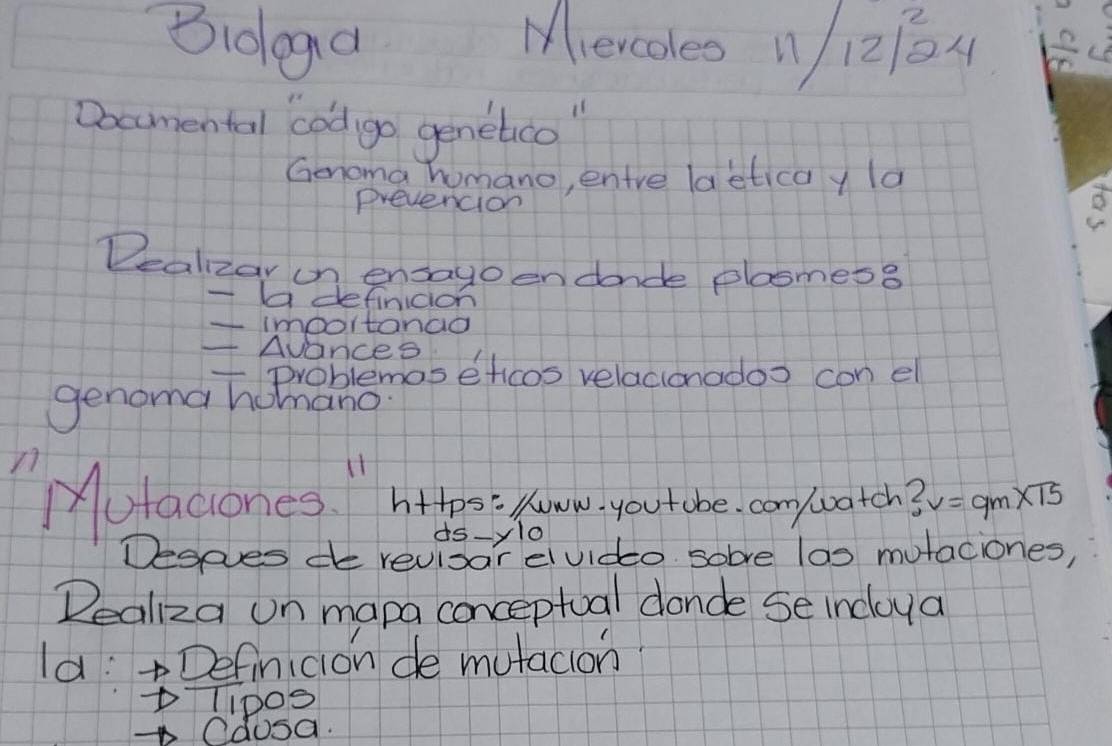 Biologia Miercoles 11/12/24
Documental "código genético"
Genoma humano, entre la ética y la
prevencion
Realizar un ensayo en donde plasmes:
- la definicion
- importancia
- Avances.
- problemas éticos relacionados con el
genoma humano.
"Mutaciones." https://www.youtube.com/watch?v=qmXT5
ds-y10
Despues de revisar el video sobre las mutaciones,
Realiza un mapa conceptual donde se incluya
la: → Definición de mutación
→ Tipos
→ Causa.